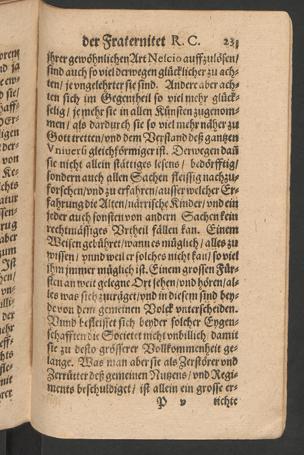 der Fraternitet R. C. 231
jhrer gewöhnlichen Art Nescio auffzulösen/
sind auch so viel derwegen glücklicher zu ach-
ten/ je vngelehrter sie sind. Andere aber ach-
ten sich im Gegentheil so viel mehr glück-
selig/ je mehr sie in allen Künsten zugenom-
men/ als dardurch sie so viel mehr näher zu
Gott tretten/ vnd dem Verstand deß gantzen
Vniversi gleichförmiger ist. Derwegen dañ
sie nicht allein stättiges lesens/ bedörfftig/
sondern auch allen Sachen fleissig nachzu-
forschen/ vnd zu erfahren/ ausser welcher Er-
fahrung die Alten/ närrische Kinder/ vnd ein
jeder auch sonsten von andern Sachen kein
rechtmässiges Vrtheil fällen kan. Einem
Weisen gebühret/ wann es müglich/ alles zu
wissen/ vnnd weil er solches nicht kan/ so viel
ihm jmmer müglich ist. Einem grossen Für-
sten an weit gelegne Ort sehen/ vnd hören/ al-
les was sich zuträget/ vnd in diesem sind bey-
de von dem gemeinen Volck vnterscheiden.
Vnnd befleisset sich beyder solcher Eygen-
schafften die Societet nicht vnbillich/ damit
sie zu desto grösserer Vollkommenheit ge-
lange. Was man aber sie als Zerstörer vnd
Zerrütter deß gemeinen Nutzens/ vnd Regi-
ments beschuldiget/ ist allein ein grosse er-
P v tichte